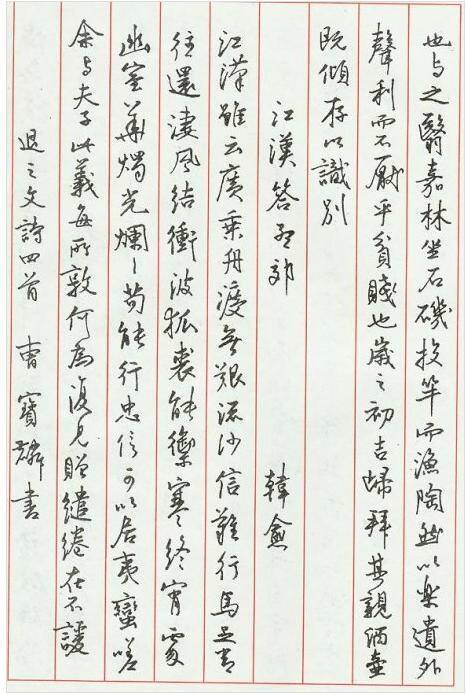 也与之翳嘉林坐石磯投竿而漁陶然以樂遺外
聲利而不厭乎貧賤也歲之初吉歸拜其親酒壺
既傾存以識別
江漢答孟郊
韓愈
江漢雖云廣乘舟渡無艱流沙信難行馬足常
往還淒風結衝波狐裘能禦寒終宵處
幽室華燭光爛〻苟能行忠信可以居夷蠻嗟
余与夫子此義每所敦何為復見贈繾綣在不諼
退之文詩四首 曹寶麟書